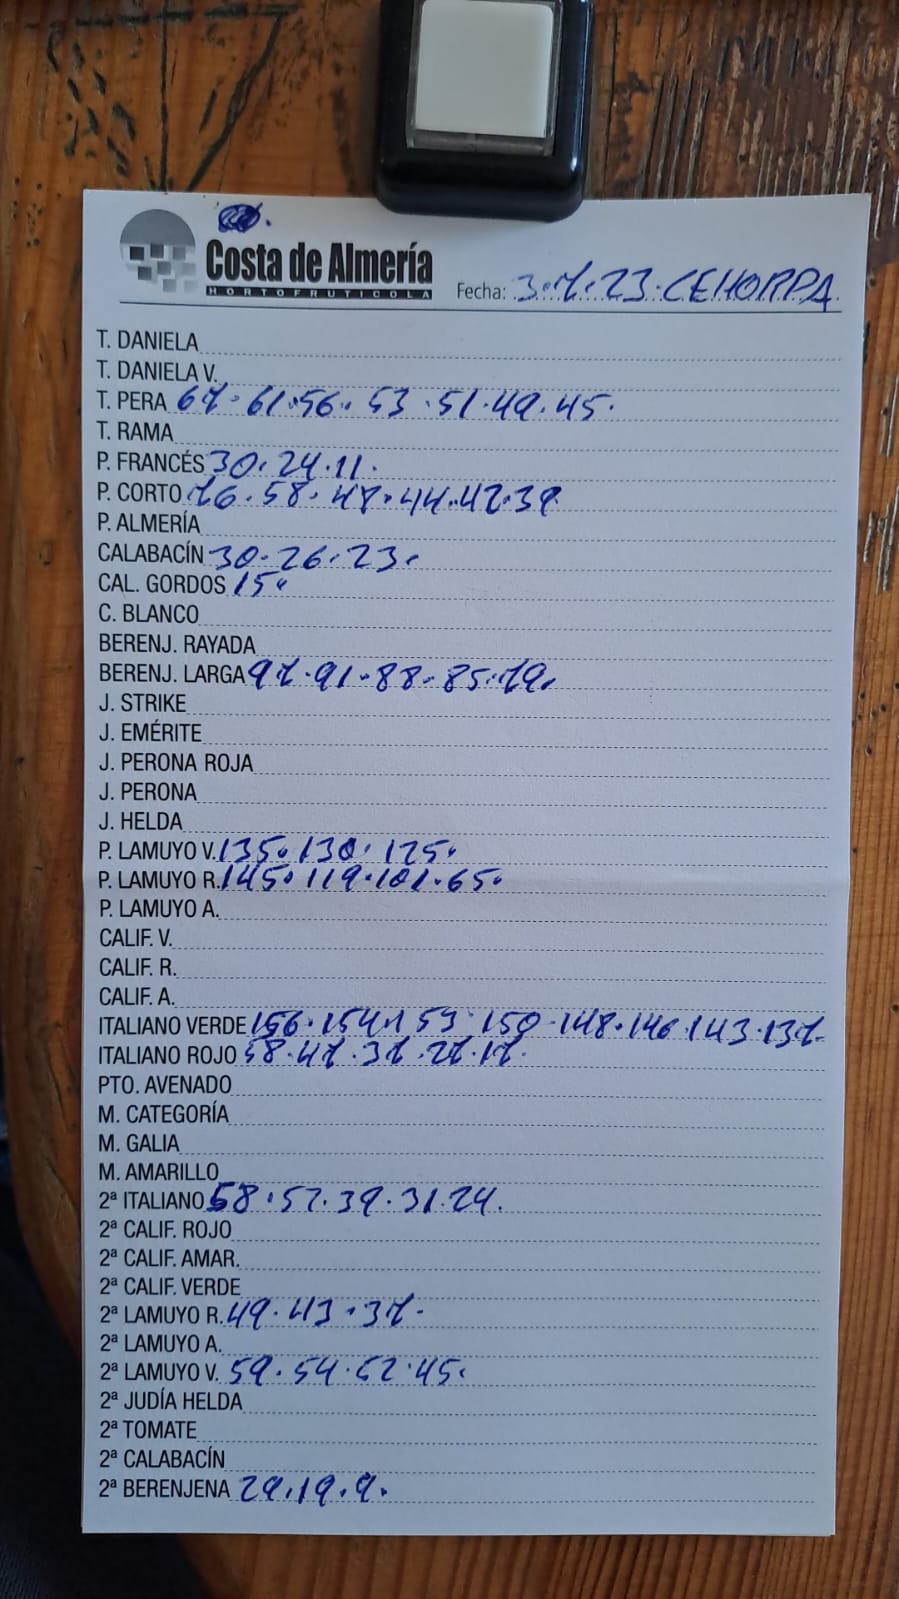 Costa de Almería
HORTOFRUTICOLA
Fecha: 3.7.23. CEHORPA
T. DANIELA
T. DANIELA V.
T. PERA 67. 61. 56. 53. 51. 49. 45.
T. RAMA
P. FRANCÉS 30. 24. 11.
P. CORTO 76. 58. 47. 44. 42. 39
P. ALMERÍA
CALABACÍN 30. 26. 23.
CAL. GORDOS 15.
C. BLANCO
BERENJ. RAYADA
BERENJ. LARGA 97. 91. 88. 85. 79.
J. STRIKE
J. EMÉRITE
J. PERONA ROJA
J. PERONA
J. HELDA
P. LAMUYO V. 135. 130. 125.
P. LAMUYO R. 145. 119. 101. 65.
P. LAMUYO A.
CALIF. V.
CALIF. R.
CALIF. A.
ITALIANO VERDE 156. 154. 153 150. 148. 146 143. 137.
ITALIANO ROJO 58. 47. 37. 27. 17.
PTO. AVENADO
M. CATEGORÍA
M. GALIA
M. AMARILLO
2ª ITALIANO 58. 57. 39. 31. 24.
2ª CALIF. ROJO
2ª CALIF. AMAR.
2ª CALIF. VERDE
2ª LAMUYO R. 49. 43. 37.
2ª LAMUYO A.
2ª LAMUYO V. 59. 54. 52. 45.
2ª JUDÍA HELDA
2ª TOMATE
2ª CALABACÍN
2ª BERENJENA 29. 19. 9.